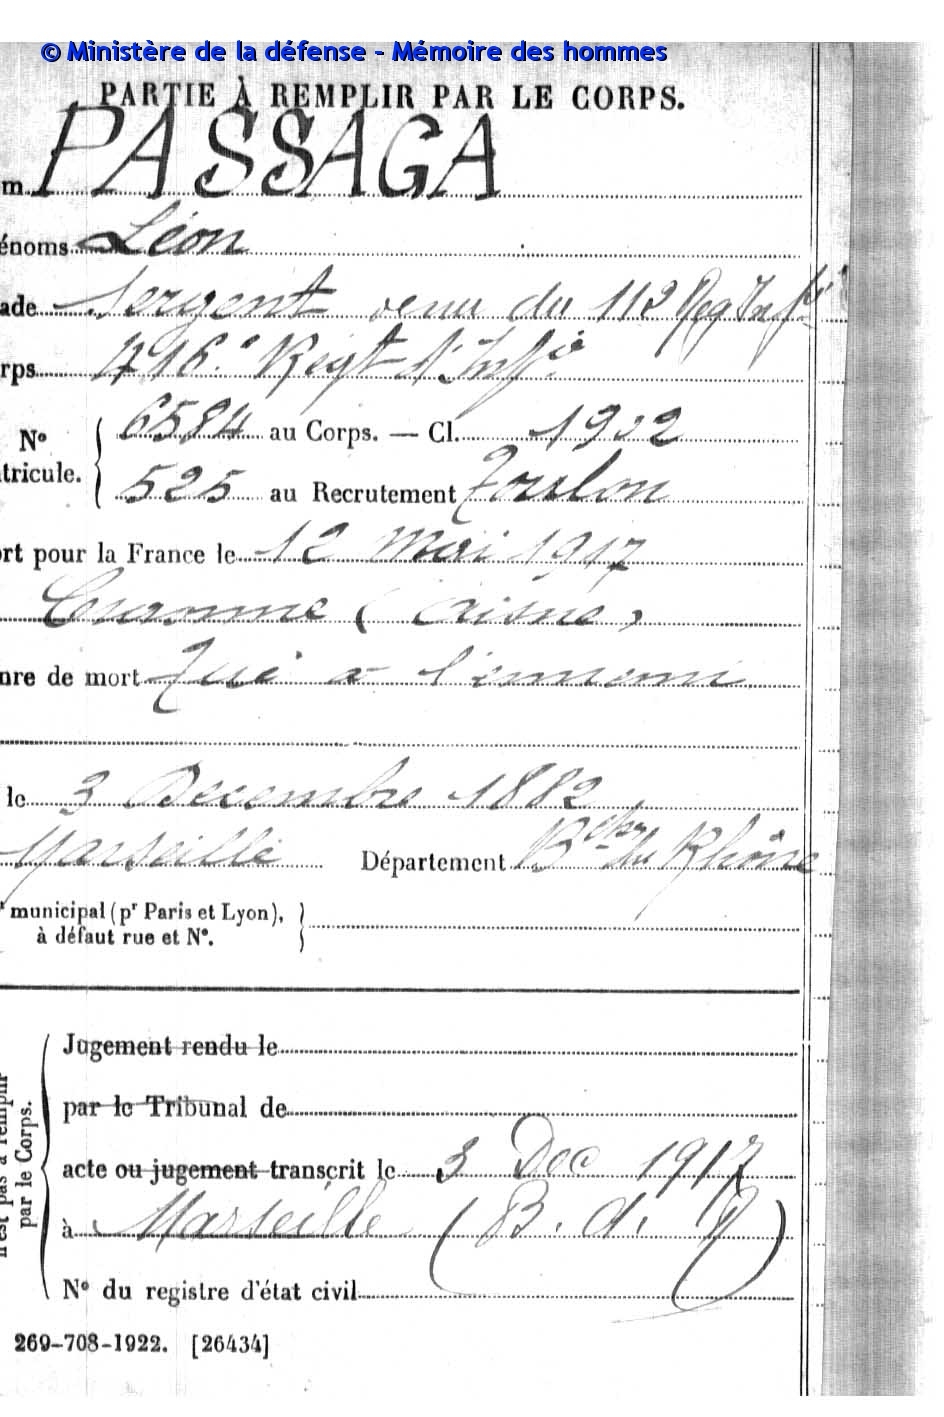 © Ministère de la défense - Mémoire des hommes
PARTIE À REMPLIR PAR LE CORPS.
m PASSAGA
énoms Léon
ade Sergent venu du 112 Reg Infie
rps Regt d'Infie
Nº
tricule.
6584 au Corps. — Cl. 1902
525 au Recrutement Toulon
ort pour la France le 12 Mai 1917
Craonne (Aisne)
nre de mort Tué à l'ennemi
le 3 Décembre 1882
Marseille Département Bches du Rhône
t municipal (pr Paris et Lyon),
à défaut rue et Nº.
n'est pas à remplir
par le Corps.
Jugement rendu le
par le Tribunal de
acte ou jugement transcrit le 3 Dec 1917
à Marseille (B. d. R)
Nº du registre d'état civil
269-708-1922. [26434]